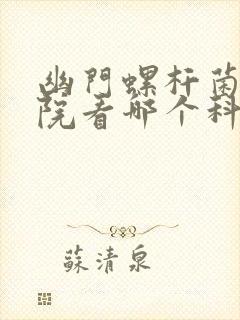 幽門螺杆菌
院看哪个科
蘇清泉